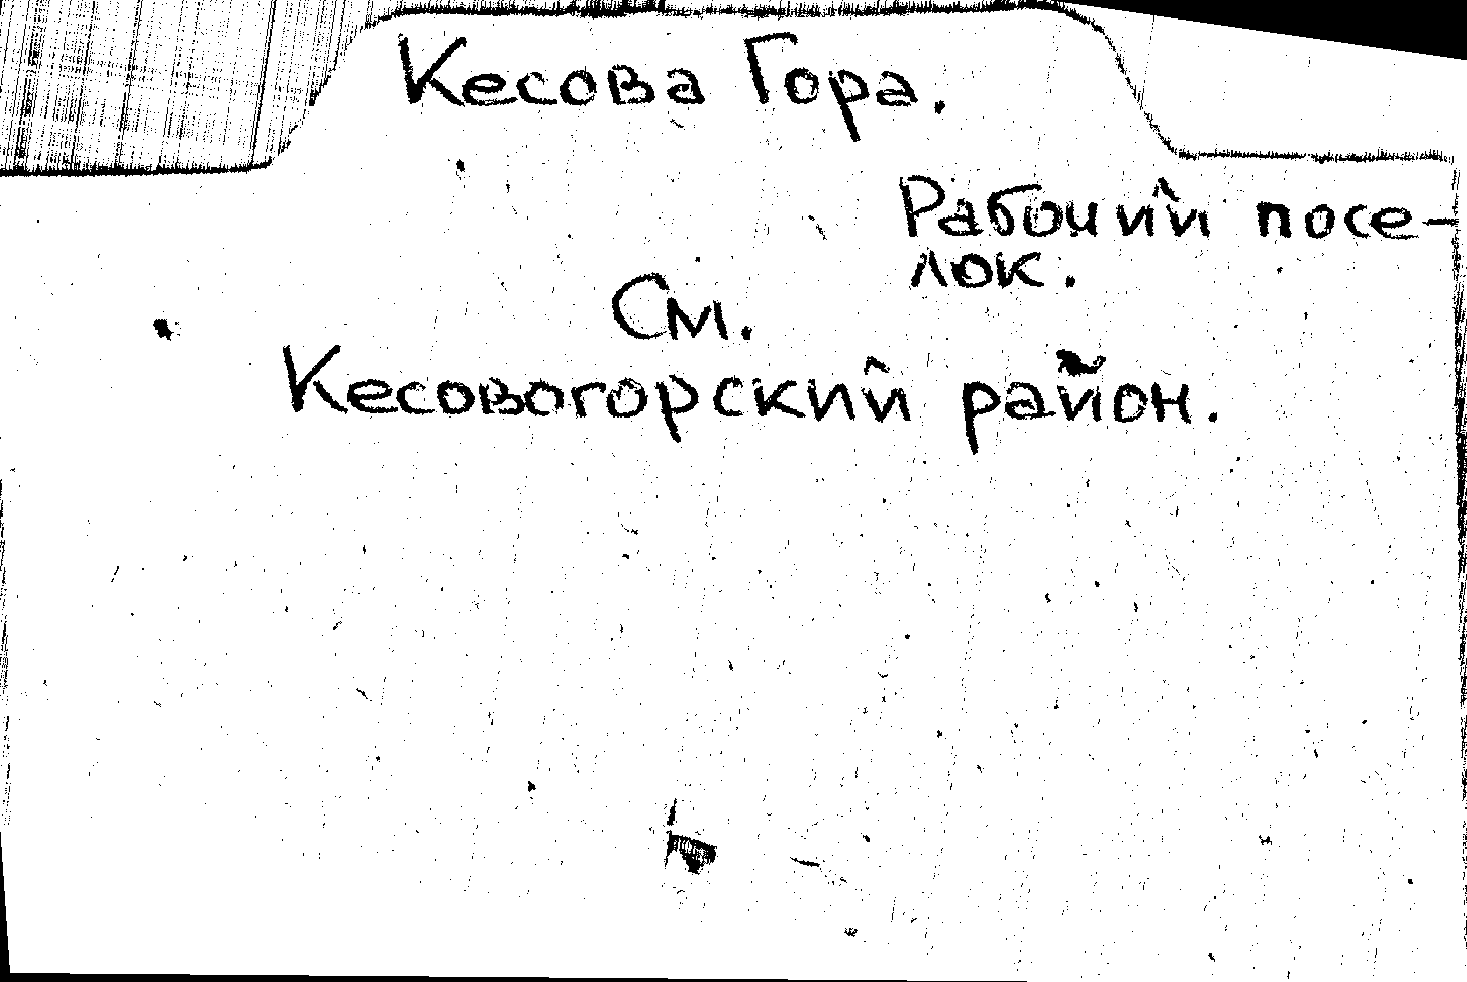 Кесова Гора.
Рабочий посе-
лок.
См.
Кесовогорский район.